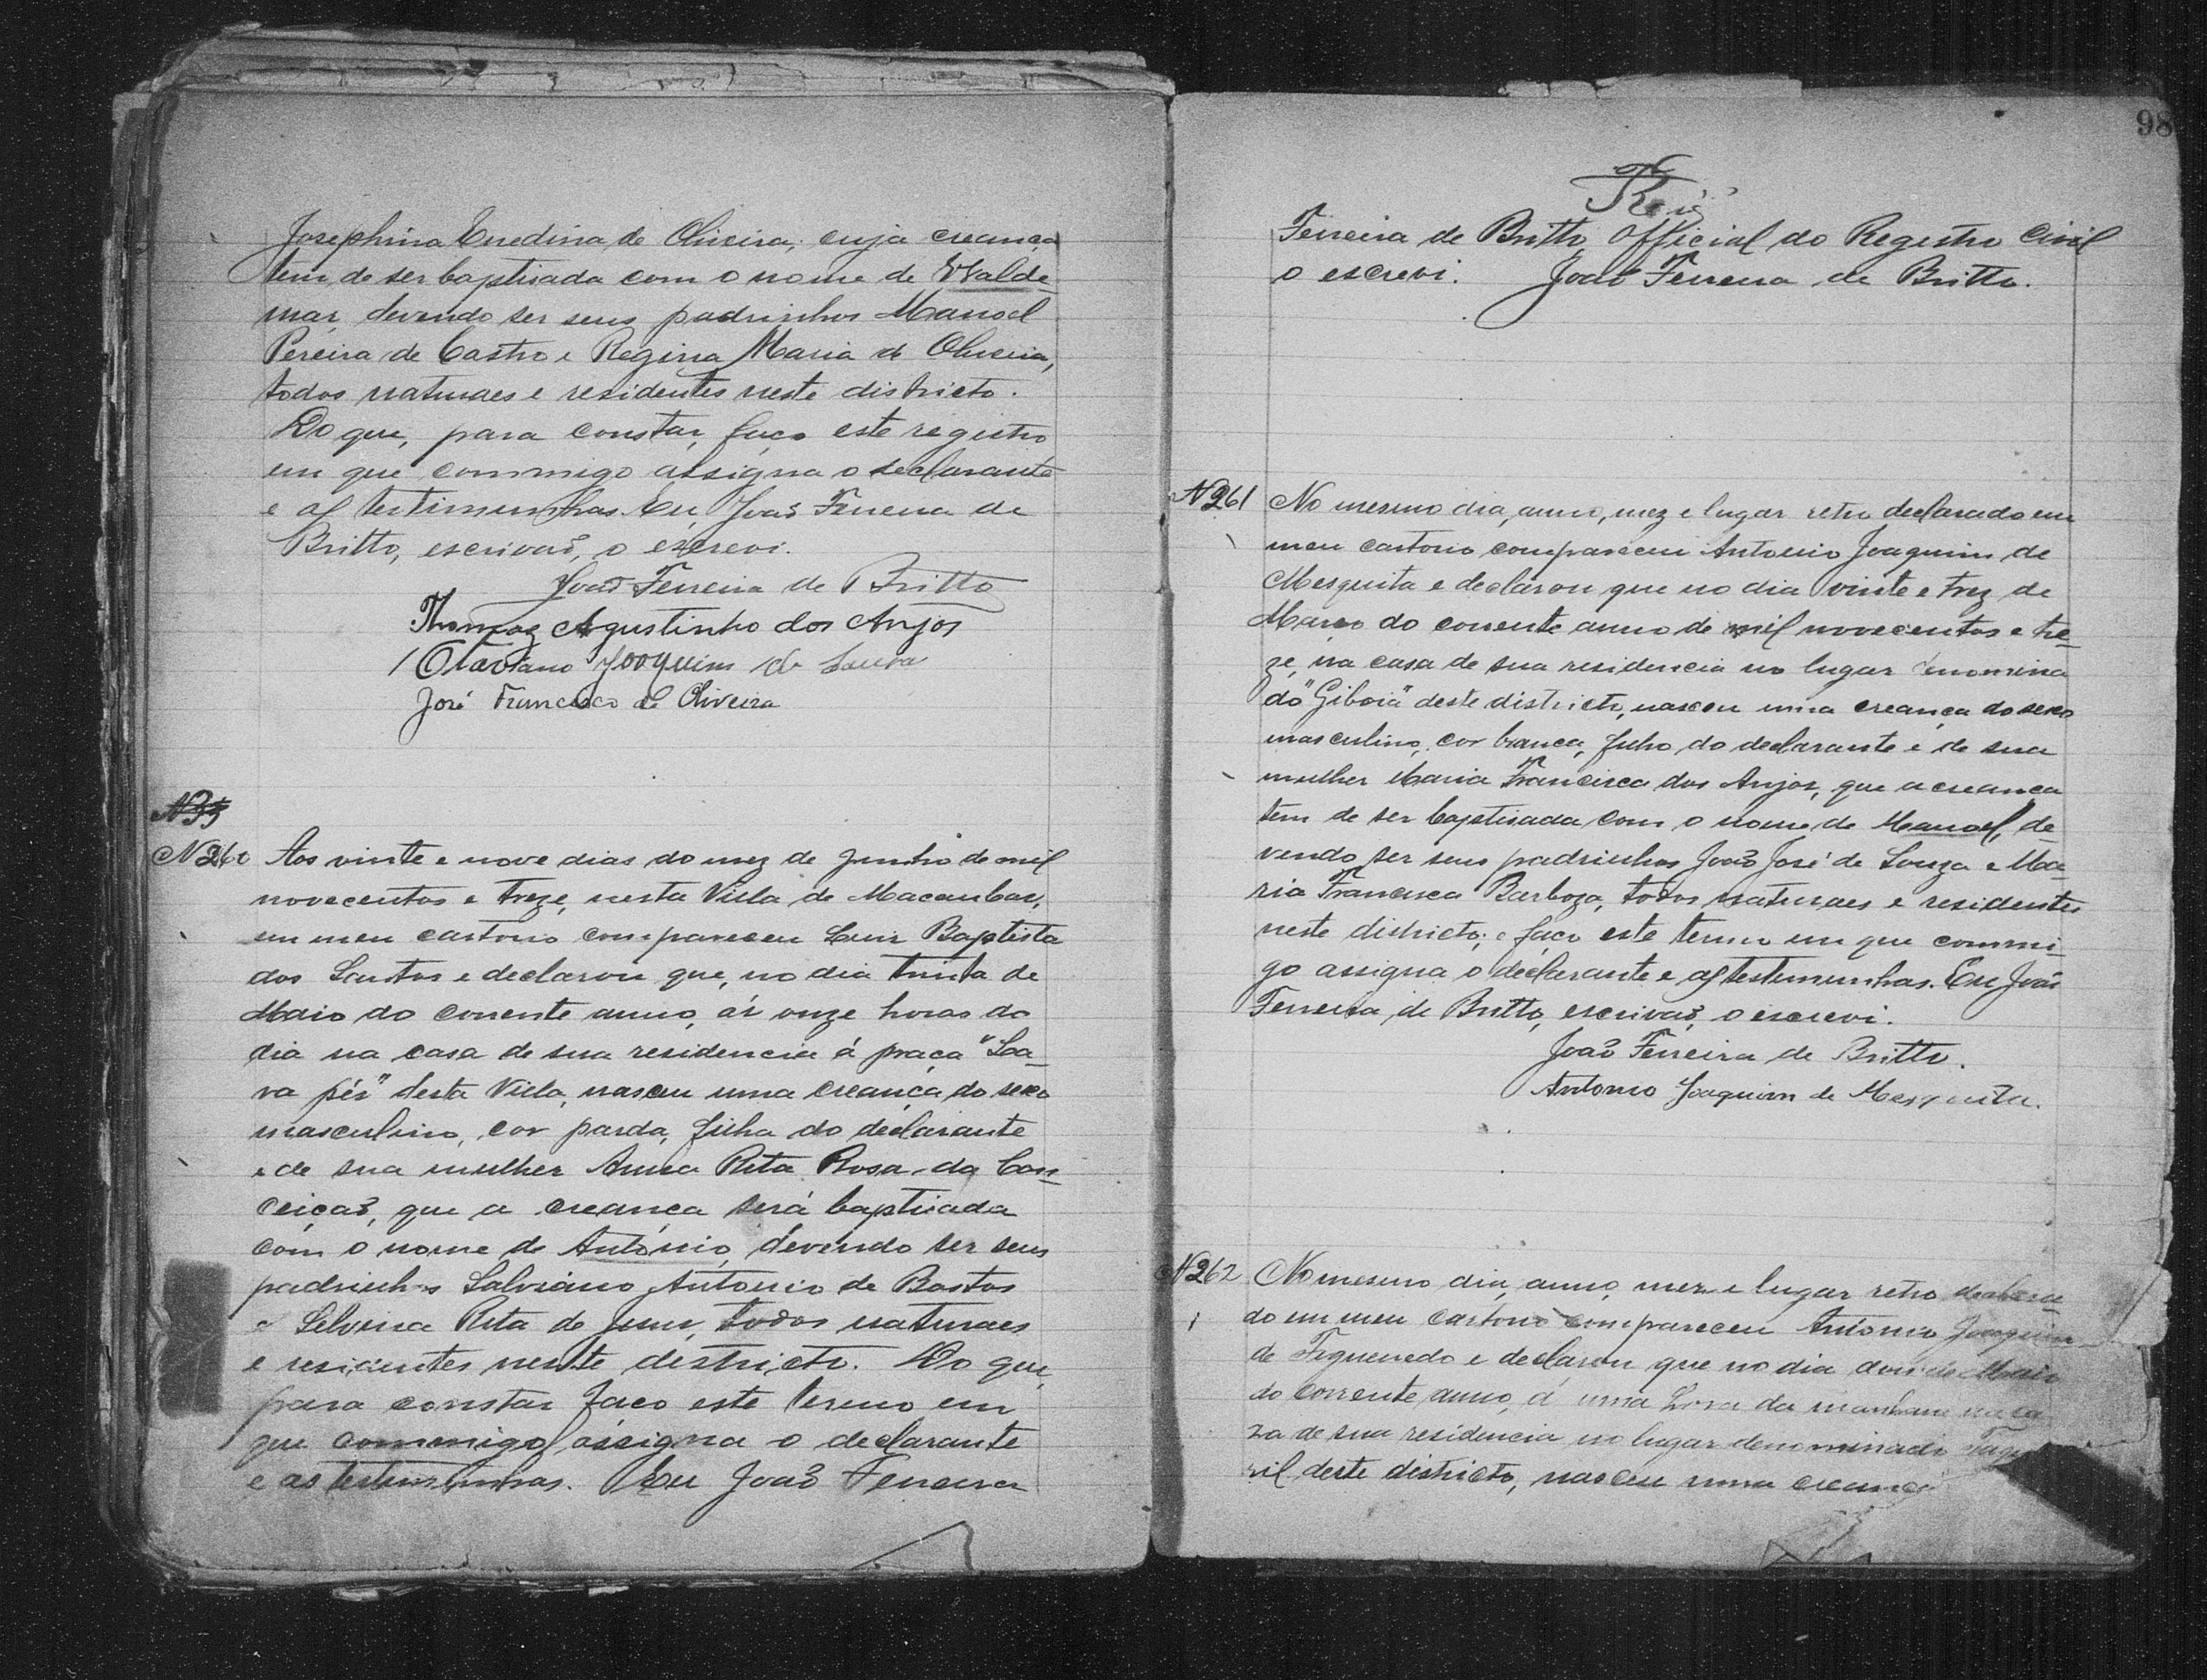 Josephina Enedina de Oliveira, cuja creança
tem de ser baptisada com o nome de Walde-
mar, devendo ser seus padrinhos Manoel
Pereira de Castro e Regina Maria de Oliveira,
todos naturaes e residentes neste districto.
Do que, para constar, faço este registro
em que commigo assigna o declarante
e as testimunhas. Eu, João Ferreira de
Britto, escrivaõ, o escrevi.
João Ferreira de Britto
Thomaz Agustinho dos Anjos
Otaviano Joaquim de
José Francisco de Oliveira
N 260 Aos vinte e nove dias do mez de Junho de mil
novecentos e treze, nesta Villa de Macaubas,
em meu cartorio compareceu Luiz Baptista
dos Santos e declarou que, no dia trinta de
Maio do corrente anno, ás onze horas do
dia na casa de sua residencia á praça "La-
va pés" desta Villa, nasceu uma creança do sexo
masculino, cor parda, filha do declarante
e de sua mulher Anna Rita Rosa da Con-
ceiçaõ, que a creança será baptisada
com o nome de Antonio, devendo ser seus
padrinhos Salviano Antonio de Bastos
e Silvina Rita de Jesus, todos naturaes
e residentes neste districto. Do que,
para constar faço este termo em
que commigo assigna o declarante
e as testimunhas. Eu João Ferreira
98
Ferreira de Britto, Official do Registro Civil
o escrevi. João Ferreira de Britto.
N 261 No mesmo dia, anno, mez e lugar retro declarado em
meu cartorio compareceu Antonio Joaquim de
Mesquita e declarou que no dia vinte e trez de
Março do corrente anno de mil novecentos e tre-
ze, na casa de sua residencia no lugar denomina
do "Giboia" deste districto, nasceu uma creança do sexo
masculino, cor branca, filho do declarante e de sua
mulher Maria Francisca dos Anjos, que a creança
tem de ser baptisada com o nome de Manoel, de-
vendo ser seus padrinhos João José de Souza e Ma-
ria Francisca Barboza, todos naturaes e residentes
neste districto; e faço este termo em que commi-
go assigna o declarante e as testemunhas. Eu João
Ferreira de Britto, escrivaõ, o escrevi.
João Ferreira de Britto.
Antonio Joaquim de Mesquita.
N 262 No mesmo dia, anno, mez e lugar retro declara-
do em meu cartorio compareceu Antonio Joaquim
de Figueredo e declarou que no dia dois de Maio
do corrente anno, á uma hora da manhan na ca
za de sua residencia no lugar denominado
ril deste districto, nasceu uma creança